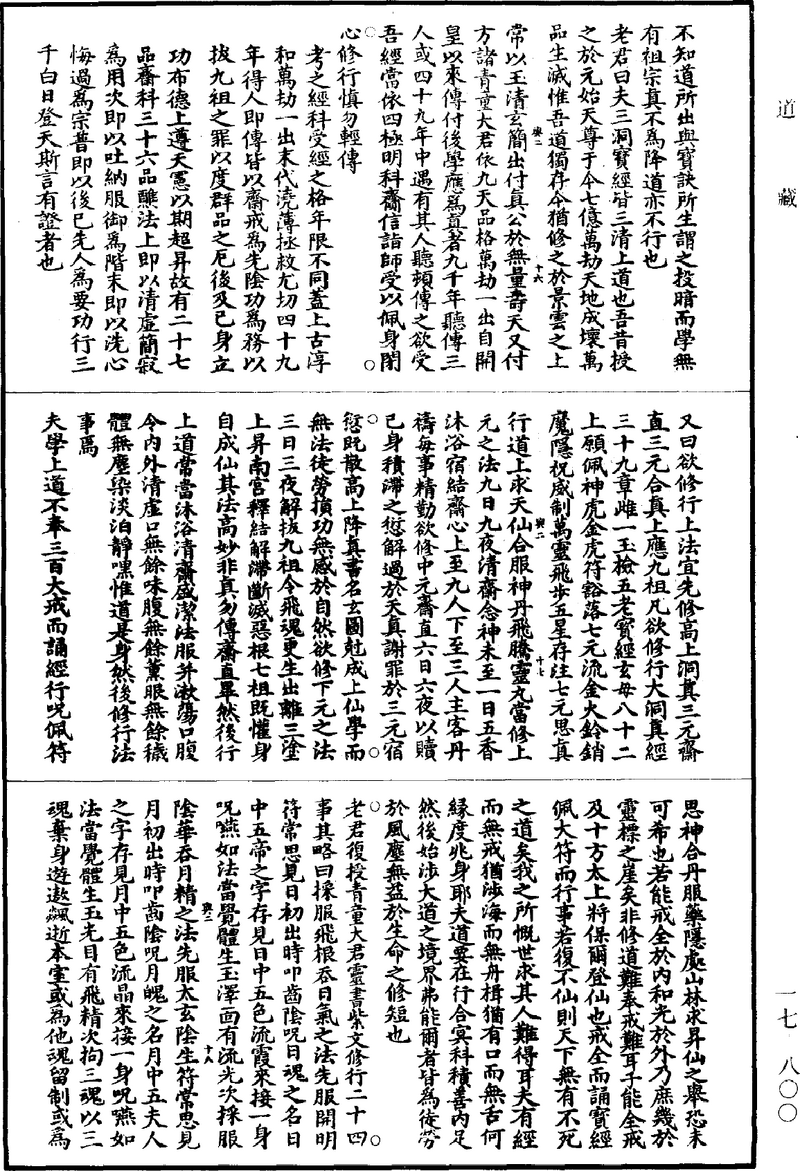 道藏
不知道所出與寶訣所生謂之投暗而學無
有祖宗真不為降道亦不行也
老君曰夫三洞寶經皆三清上道也吾昔授
之於元始天尊于今七億萬劫天地成壞萬
品生滅惟吾道獨存今猶修之於景雲之上
常以玉清玄簡出付真公於無量壽天又付
方諸青童大君依九天品格萬劫一出自開
皇以來傳付後學應為真者九千年聽傳三
人或四十九年中遇有其人聽頓傳之欲受
吾經當依四極明科齋信詣師受以佩身閉
心修行慎勿輕傳
考之經科受經之格年限不同蓋上古淳
和萬劫一出末代澆薄拯救尤切四十九
年得人即傳皆以齋戒為先陰功為務以
拔九祖之罪以度群品之厄後及己身立
功布德上遵天憲以期超昇故有二十七
品齋科三十六品醮法上即以清虛簡寂
為用次即以吐納服御為階末即以洗心
悔過為宗普即以後己先人為要功行三
千白日登天斯言有證者也
又曰欲修行上法宜先修高上洞真三元齋
直三元合真上應九祖凡欲修行大洞真經
三十九章雌一玉檢五老寶經玄母八十二
上願佩神虎金虎符豁落七元流金火鈴銷
魔隱祝威制萬靈飛步五星存注七元思真
行道上求天仙合服神丹飛騰靈丸當修上
元之法九日九夜清齋念神未至一日五香
沐浴宿結齋心上至九人下至三人主客丹
禱每事精勤欲修中元齋直六日六夜以贖
己身積滯之愆解過於天真謝罪於三元宿
愆既散高上降真書名玄圖剋成上仙學而
無法徒勞損功無感於自然欲修下元之法
三日三夜解拔九祖令飛魂更生出離三塗
上昇南宮釋結解滯斷滅惡根七祖既懽身
自成仙其法高妙非真勿傳齋直畢然後行
上道常當沐浴清齋盛潔法服并漱蕩口腹
令內外清虛口無餘味腹無餘薰服無餘穢
體無塵染淡泊靜嘿惟道是身然後修行法
事焉
夫學上道不奉三百大戒而誦經行呪佩符
思神合丹服藥隱處山林求昇仙之舉恐未
可希也若能戒全於內和光於外乃庶幾於
靈標之崖矣非修道難奉戒難耳子能全戒
及十方太上將保爾登仙也戒全而誦寶經
佩大符而行事若復不仙則天下無有不死
之道矣我之所慨世求其人難得耳夫有經
而無戒猶涉海而無舟楫猶有口而無舌何
緣度兆身耶夫道要在行合冥科積善內足
然後始涉大道之境界弗能爾者皆為徒勞
於風塵無益於生命之修短也
老君復授青童大君靈書紫文修行二十四
事其略曰採服飛根吞日氣之法先服開明
符常思見日初出時叩齒陰呪日魂之名日
中五帝之字存見日中五色流霞來接一身
呪嚥如法當覺體生玉澤面有流光次採服
陰華吞月精之法先服太玄陰生符常思見
月初出時叩齒陰呪月魄之名月中五夫人
之字存見月中五色流晶來接一身呪嚥如
法當覺體生玉光目有飛精次拘三魂以三
魂棄身遊遨飄逝本室或為他魂留制或為
一七 八〇〇